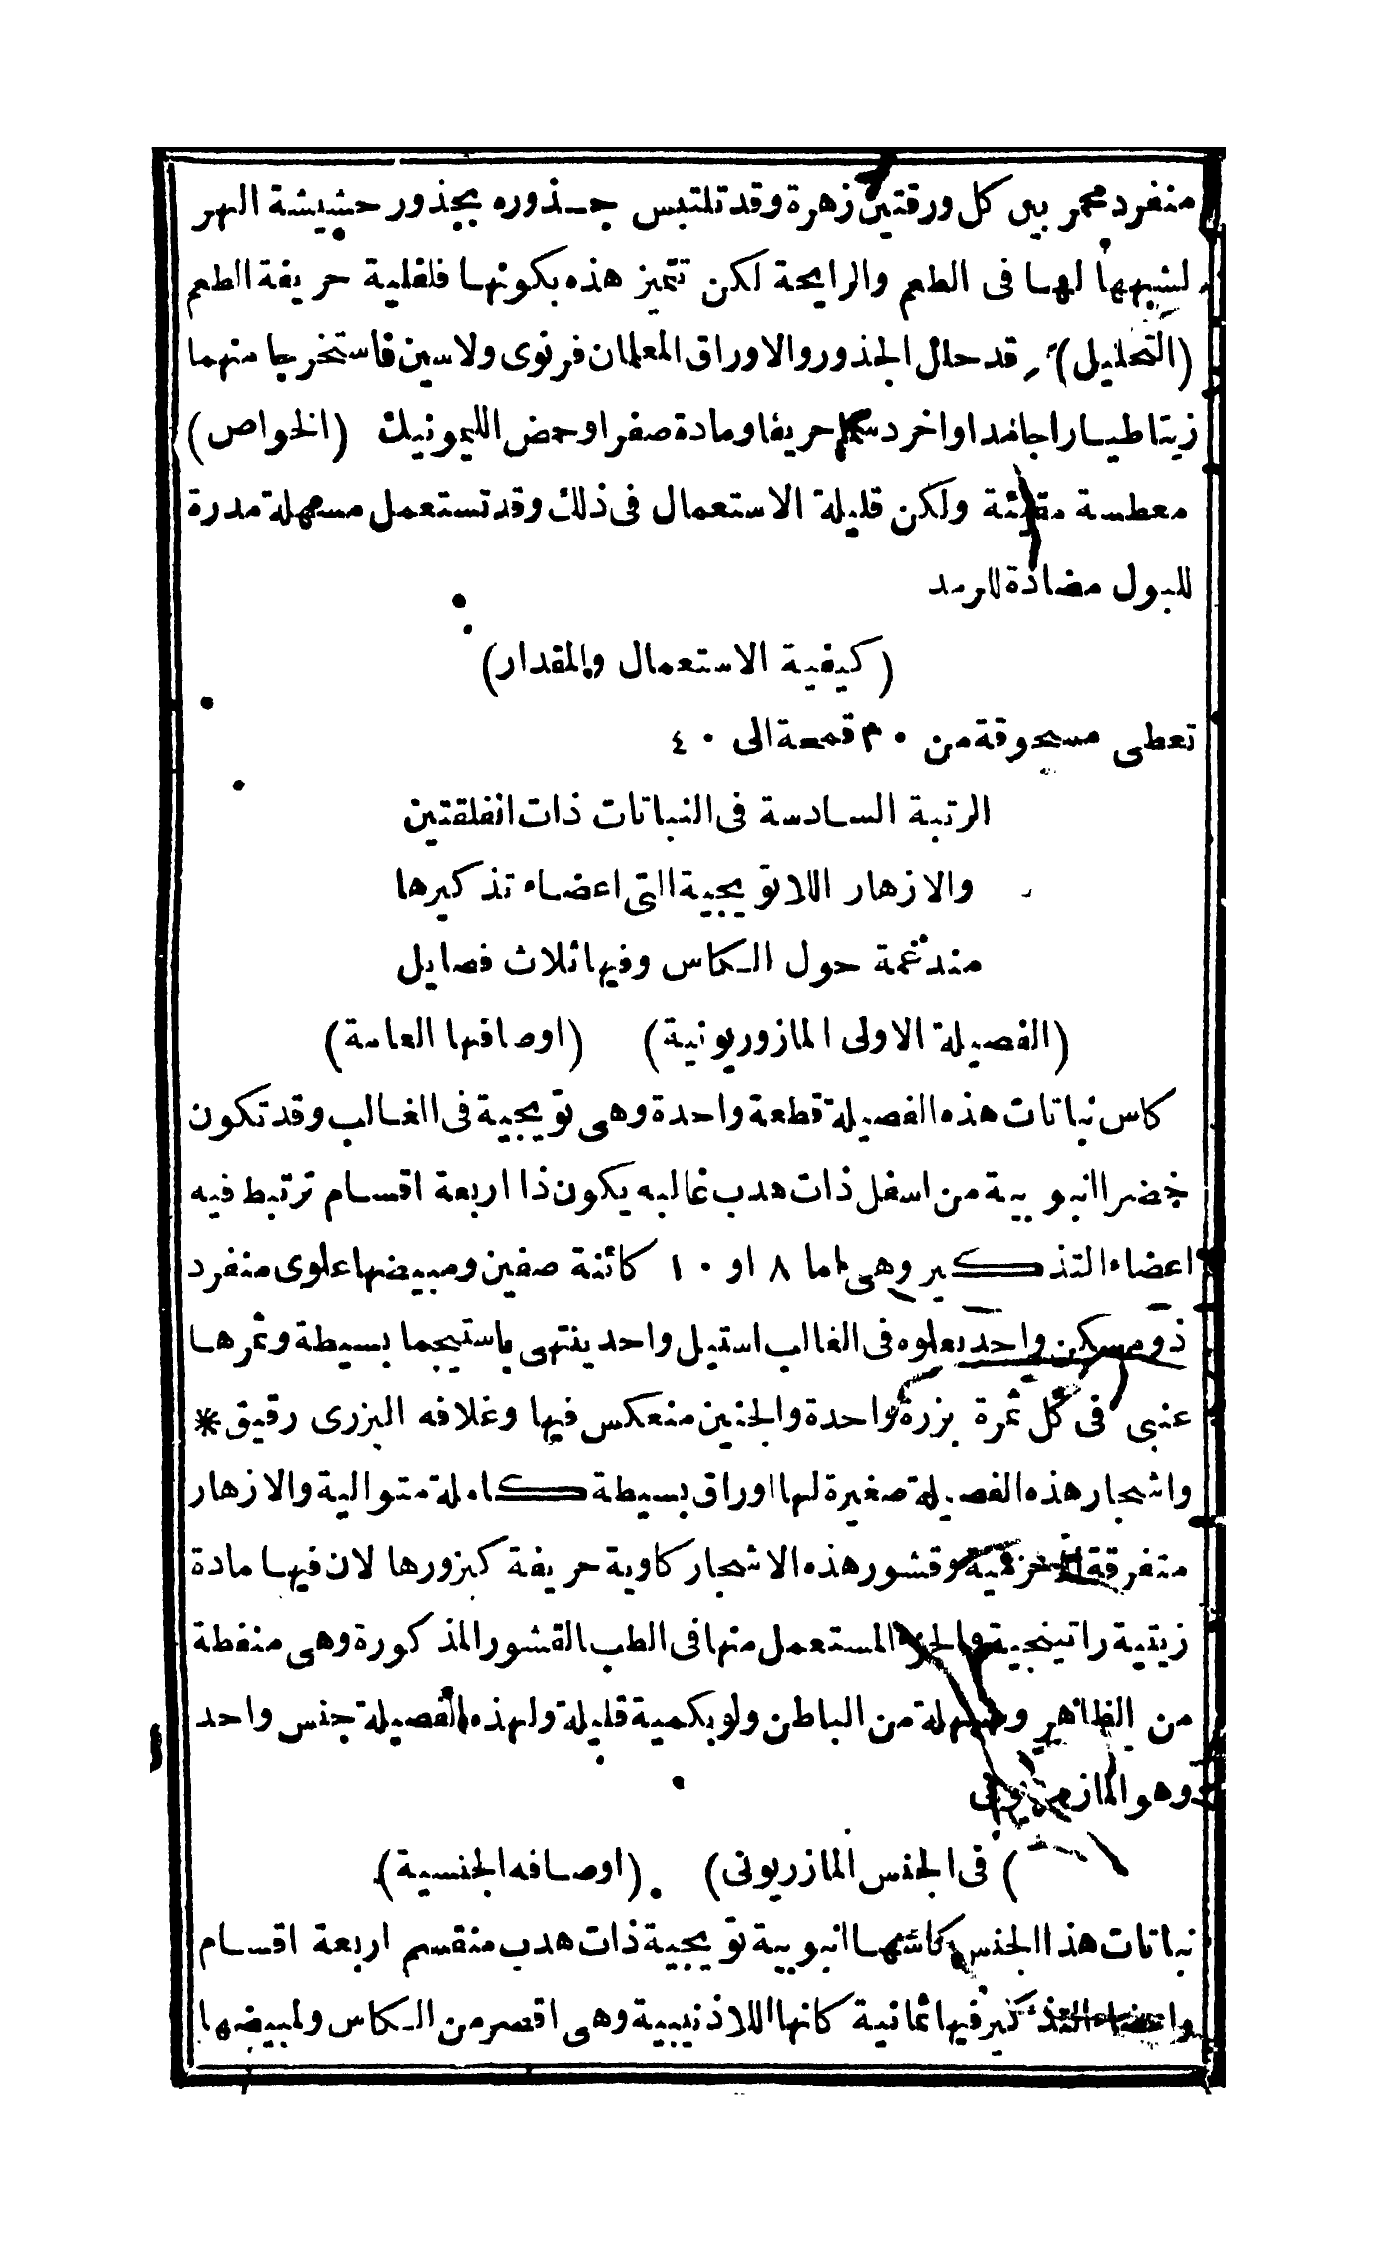 منفرد محمر بين كل ورقتين زهرة وقد تلتبس جـذوره بجذور حشيشة الهر
لشبهها لهـا فى الطعم والرايحة لكن تتميز هذه بكونهـا فلفلية حريفة الطعم
(التحليل) قد حلل الجذور والاوراق المعلمان فرنوى ولاسين فاستخرجا منهما
زيتا طيـارا جامدا واخر دسما حريفا ومادة صفرا وحمض الليمونيك (الخواص)
معطسة مقيئة ولكن قليلة الاستعمال فى ذلك وقد تستعمل مسهلة مدرة
للبول مضادة للرمد
(كيفية الاستعمال والمقدار)
تعطى مسحوقة من ٢٠ قمحة الى ٤٠
الرتبة السـادسة فى النباتات ذات الفلقتين
والازهار اللاتويجية التى اعضـاء تذكيرها
مندغمة حول الـكاس وفيها ثلاث فصايل
(الفصيلة الاولى المازوريونية) (اوصافها العامة)
كاس نباتات هذه الفصيلة قطعة واحدة وهى تويجية فى الغـالب وقد تكون
خضرا انبوبية من اسفل ذات هدب غالبه يكون ذا اربعة اقسـام ترتبط فيه
اعضاء التذكير وهى اما ٨ او ١٠ كائنة صفين ومبيضها علوى منفرد
ذو مسكن واحد يعلوه فى الغالب استيل واحد ينتهى باستيجما بسيطة وثمرهـا
عنبى فى كل ثمرة بزرة واحدة والجنين منعكس فيها وغلافه البزرى رقيق *
واشجار هذه الفصيلة صغيرة لها اوراق بسيطة كاملة متوالية والازهار
متفرقة او حزمية وقشور هذه الاشجار كاوية حريفة كبزورها لان فيهـا مادة
زيتية راتينجية والجزء المستعمل منها فى الطب القشور المذكورة وهى منفطة
من الظاهر ومسهلة من الباطن ولو بكمية قليلة ولهذه الفصيلة جنس واحد
وهو المازريونى
(فى الجنس المازريونى) (اوصـافه الجنسية)
نباتات هذا الجنس كاسهـا انبوبية تويجية ذات هدب منقسم اربعة اقسـام
واعضاء التذكير فيها ثمانية كانها اللاذنيبية وهى اقصر من الـكاس ولمبيضها